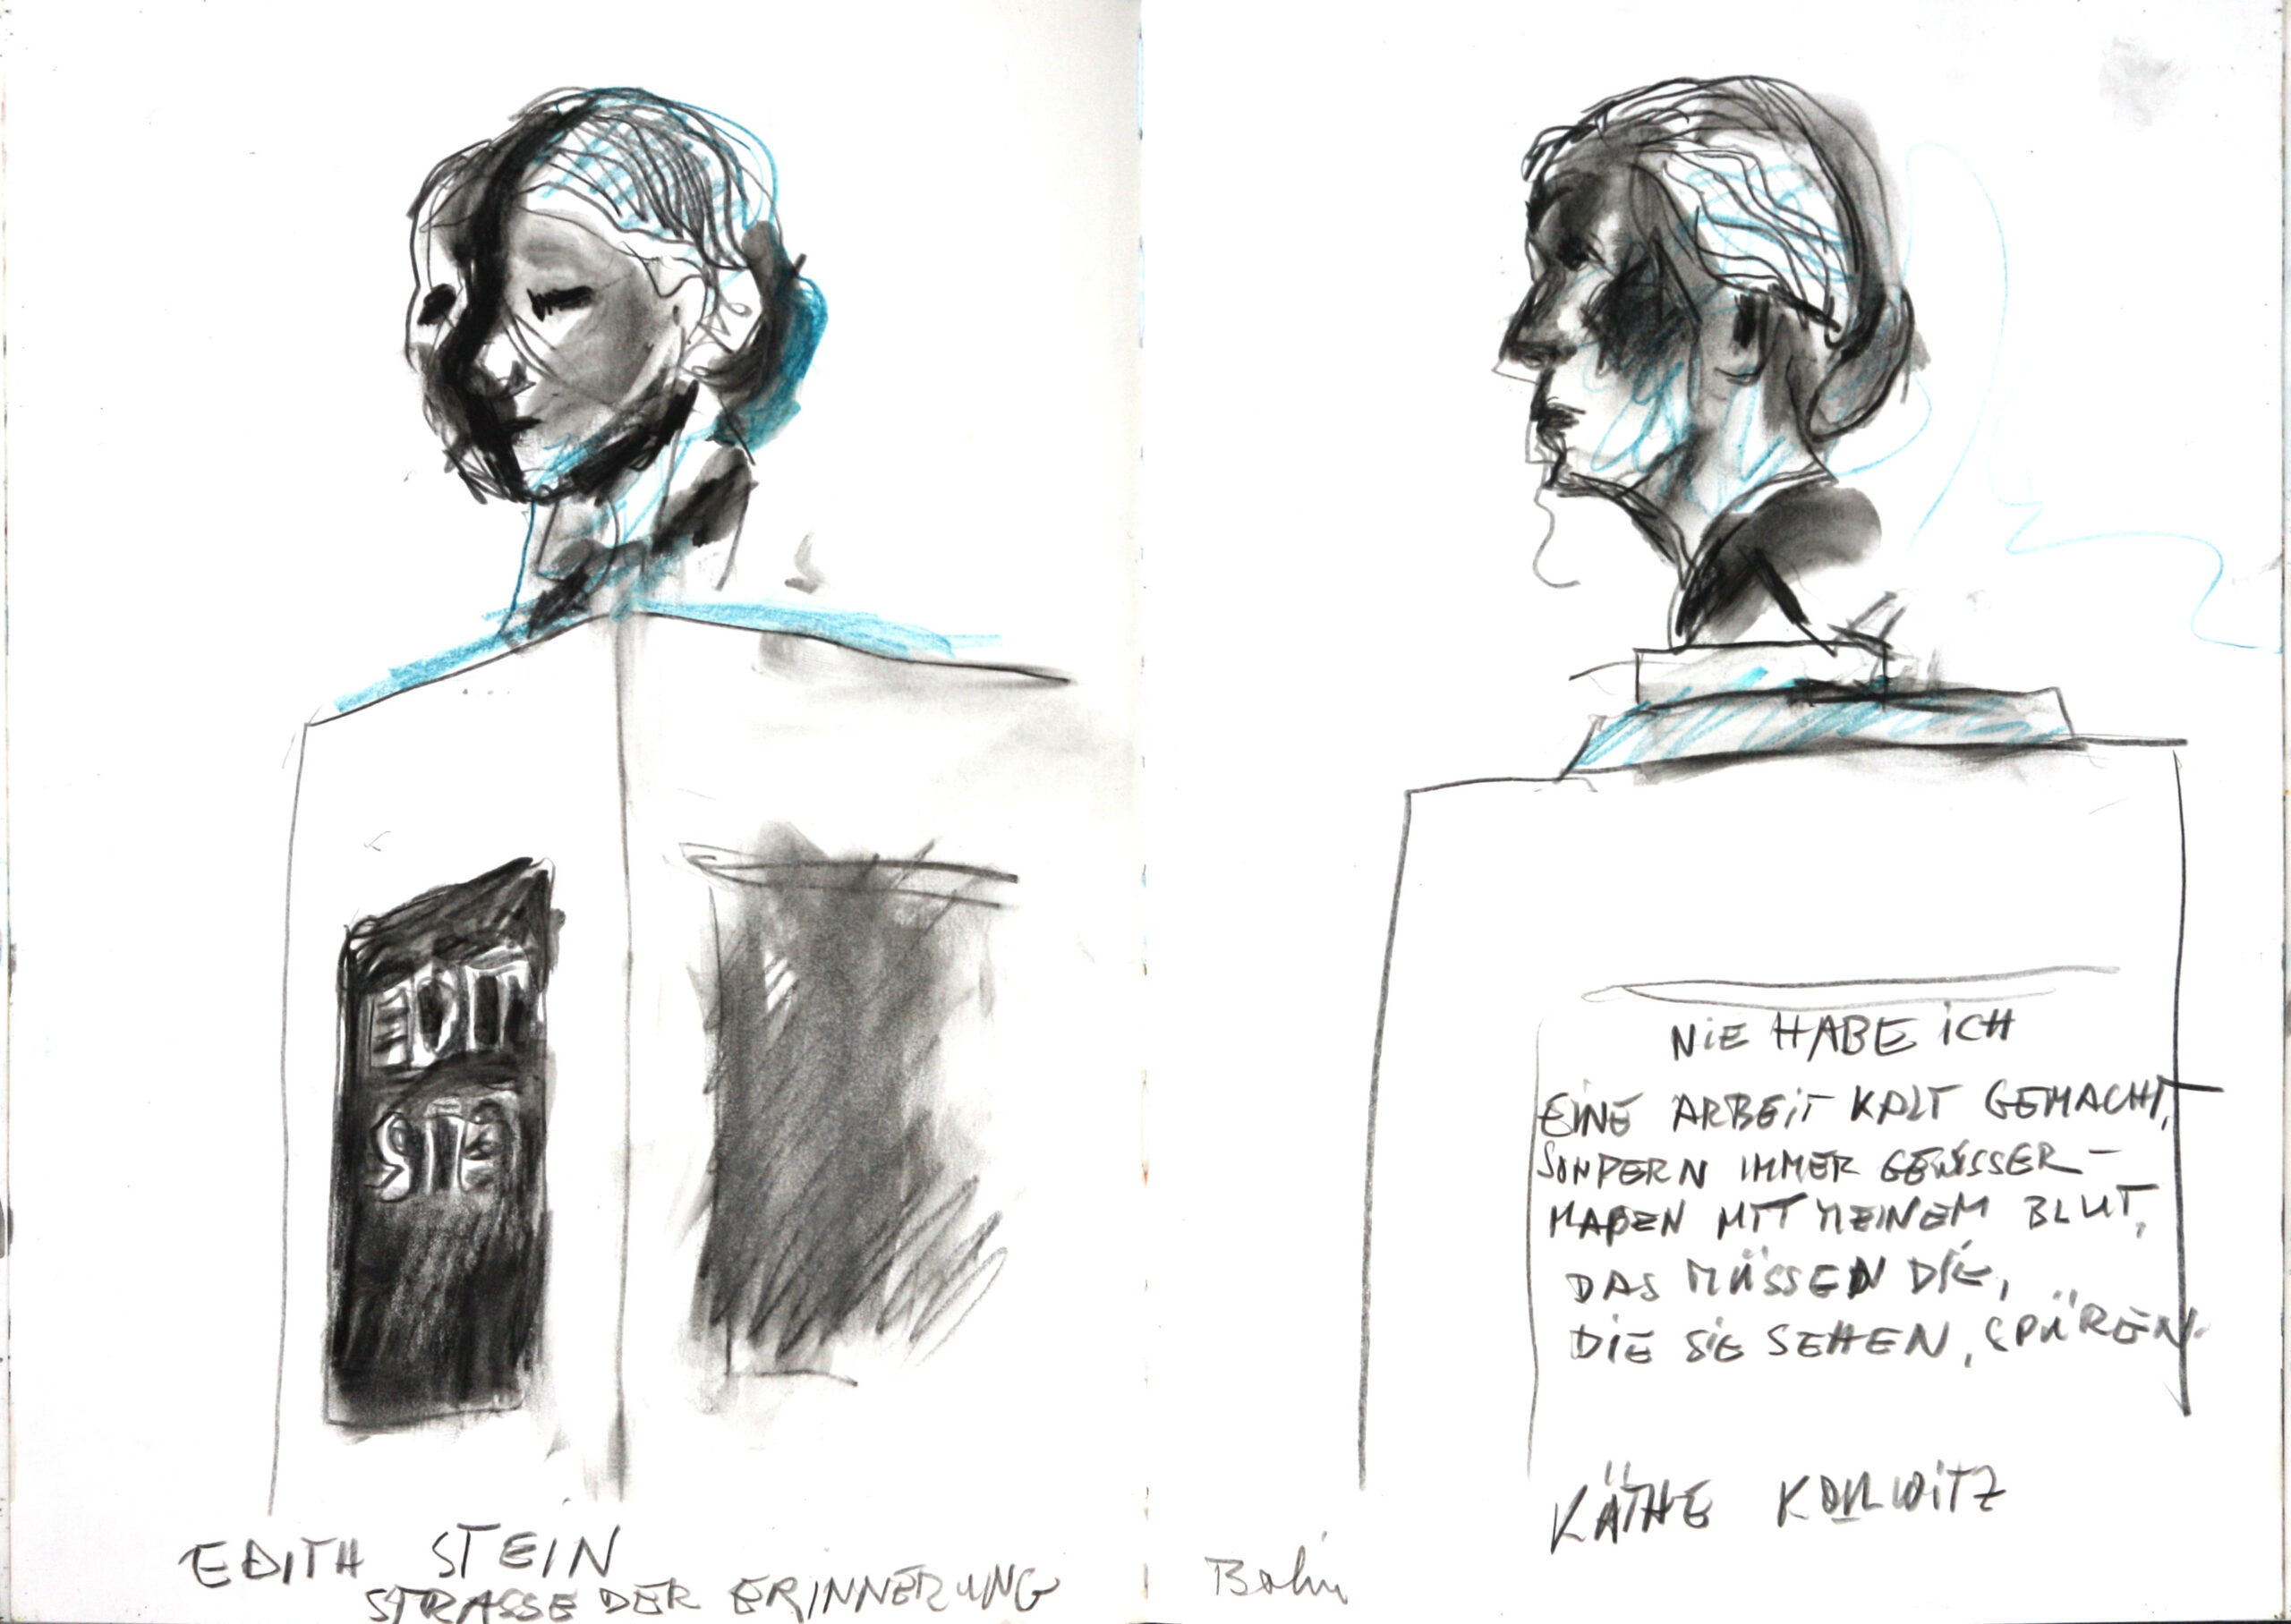 EDIT
STE
EDITH STEIN
STRASSE DER ERINNERUNG
NIE HABE ICH
EINE ARBEIT KALT GEMACHT,
SONDERN IMMER GEWISSER-
MAßEN MIT MEINEM BLUT,
DAS MÜSSEN DIE,
DIE SIE SEHEN, SPÜREN.
KÄTHE KOLLWITZ